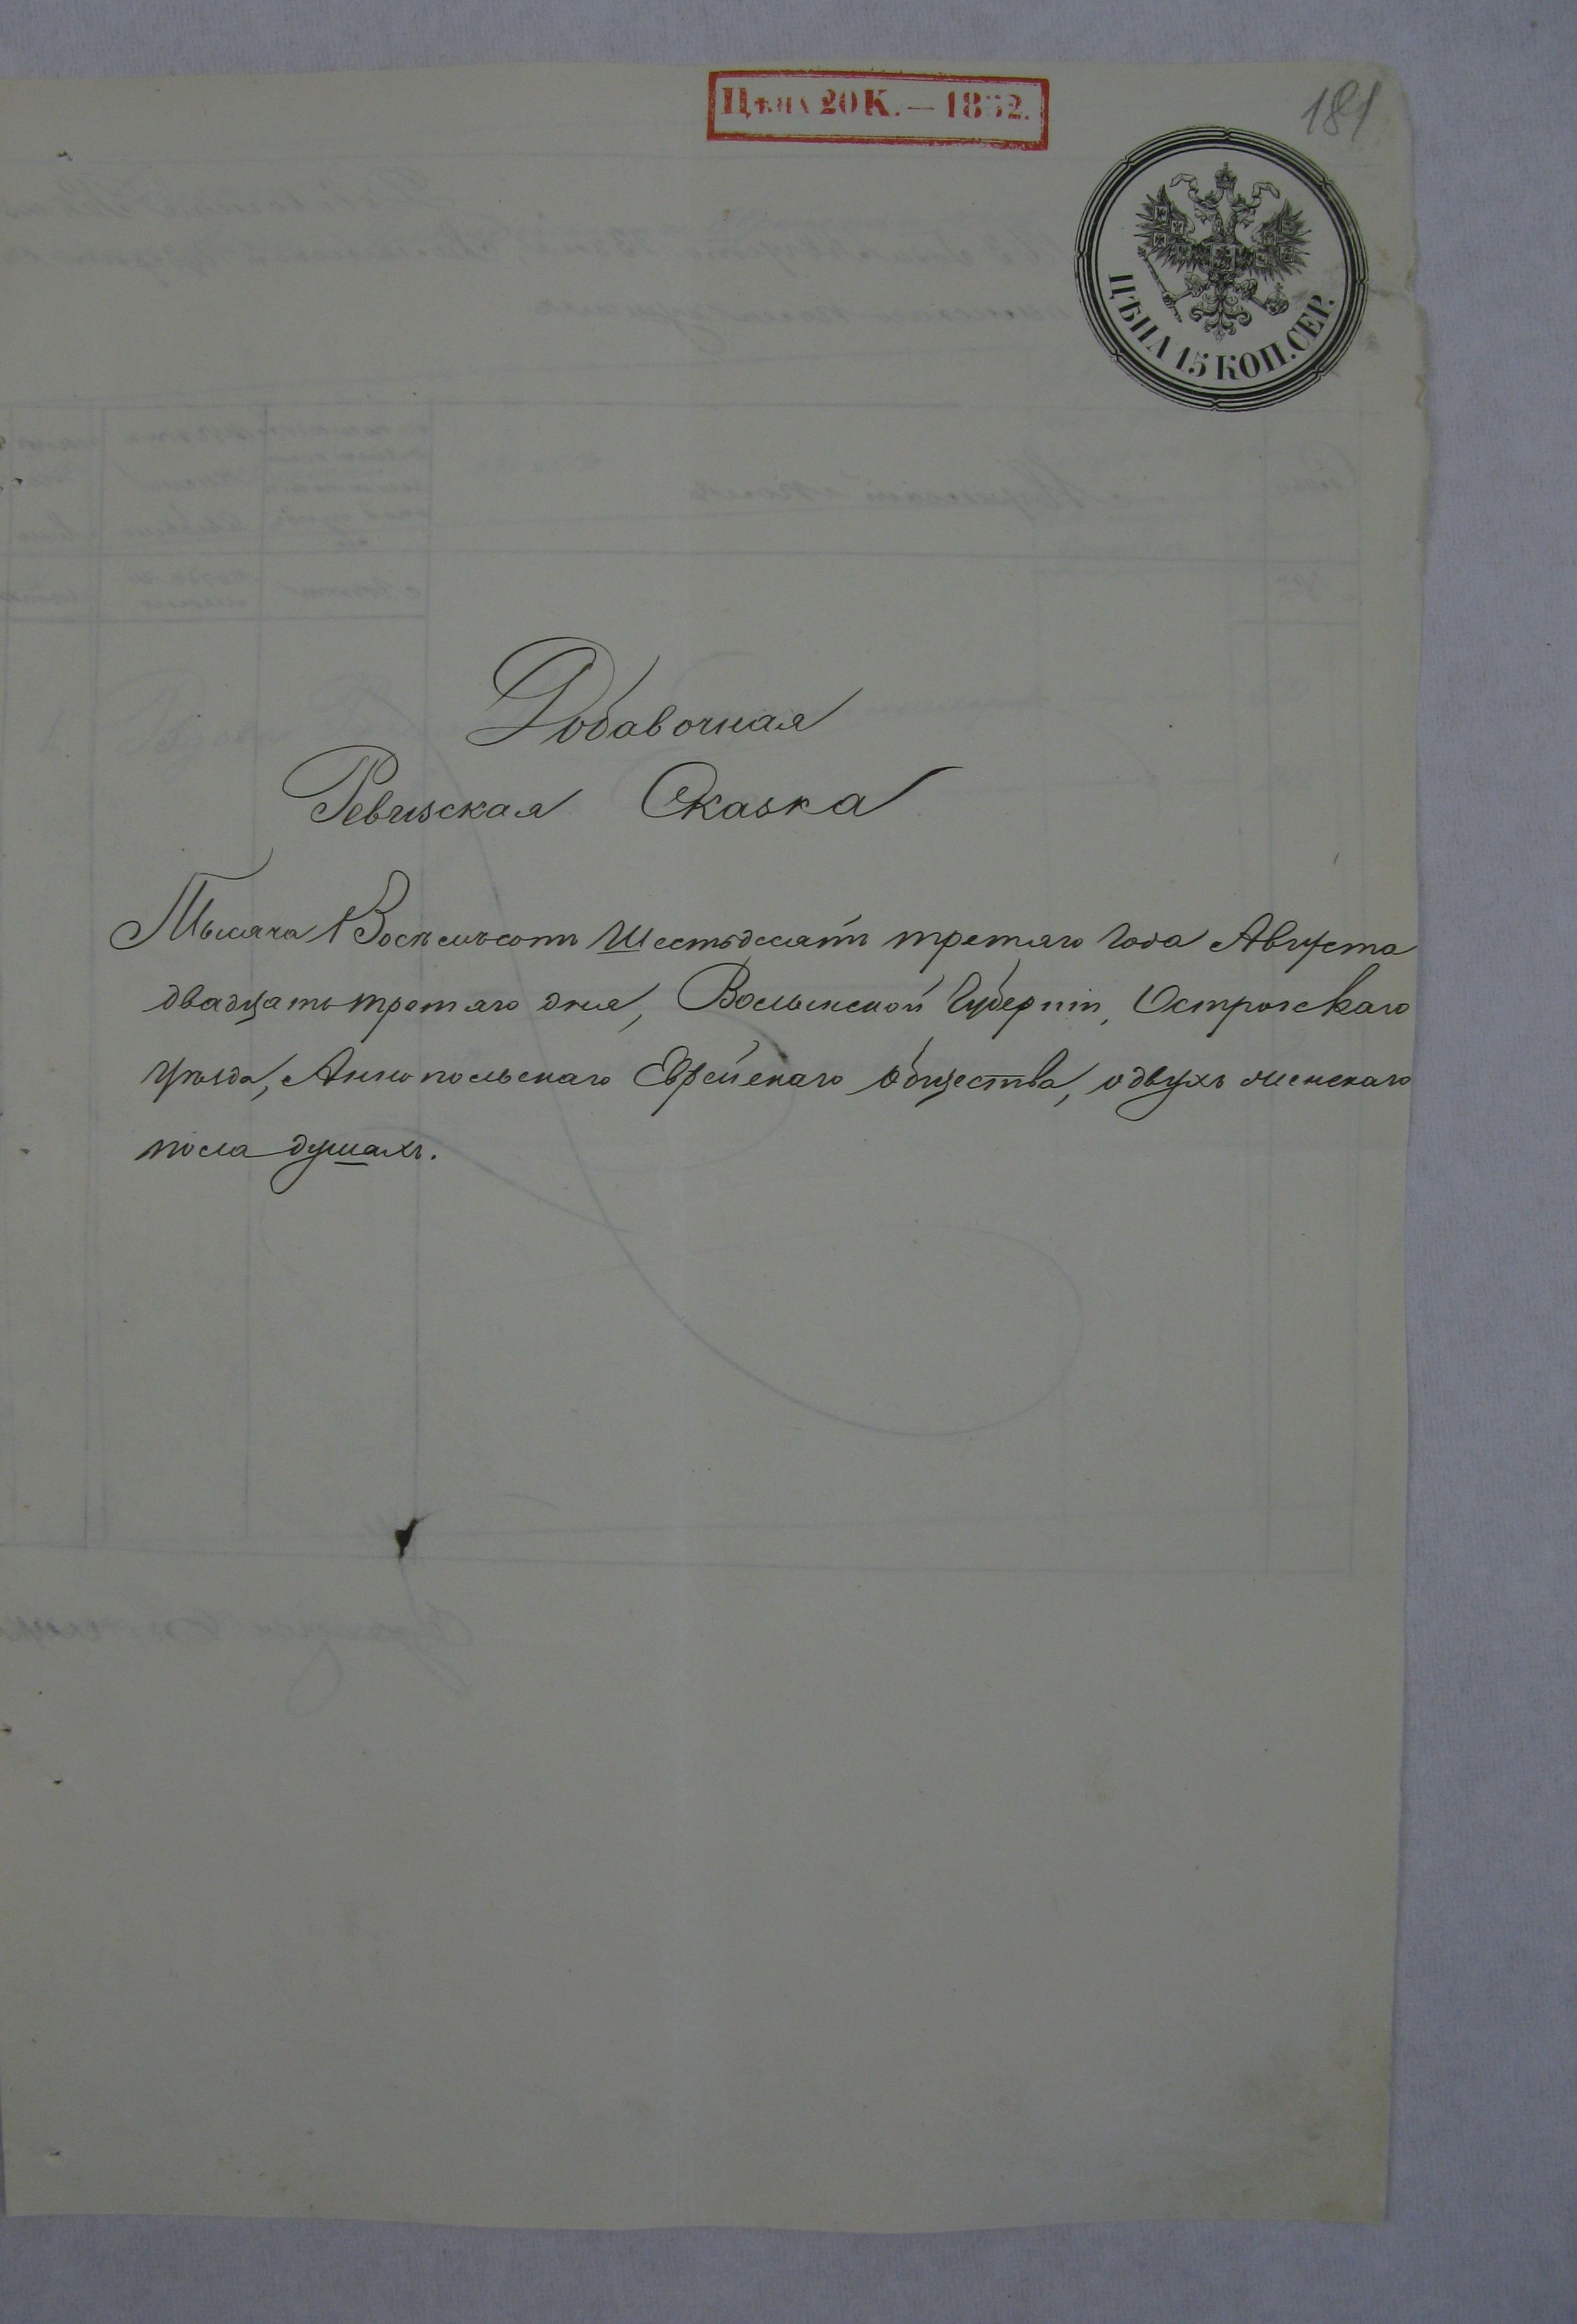 Цѣна 20 К. — 1862.
181
ЦѢНА 15 КОП. СЕР.
Добавочная
Ревизская Сказка
Тысяча Восемьсотъ Шестьдесятъ третяго года Августа
двадцать третяго дня, Волынской Губерніи, Острожскаго
уѣзда, Аннопольскаго Еврейскаго общества, о двухъ женскаго
пола душахъ.